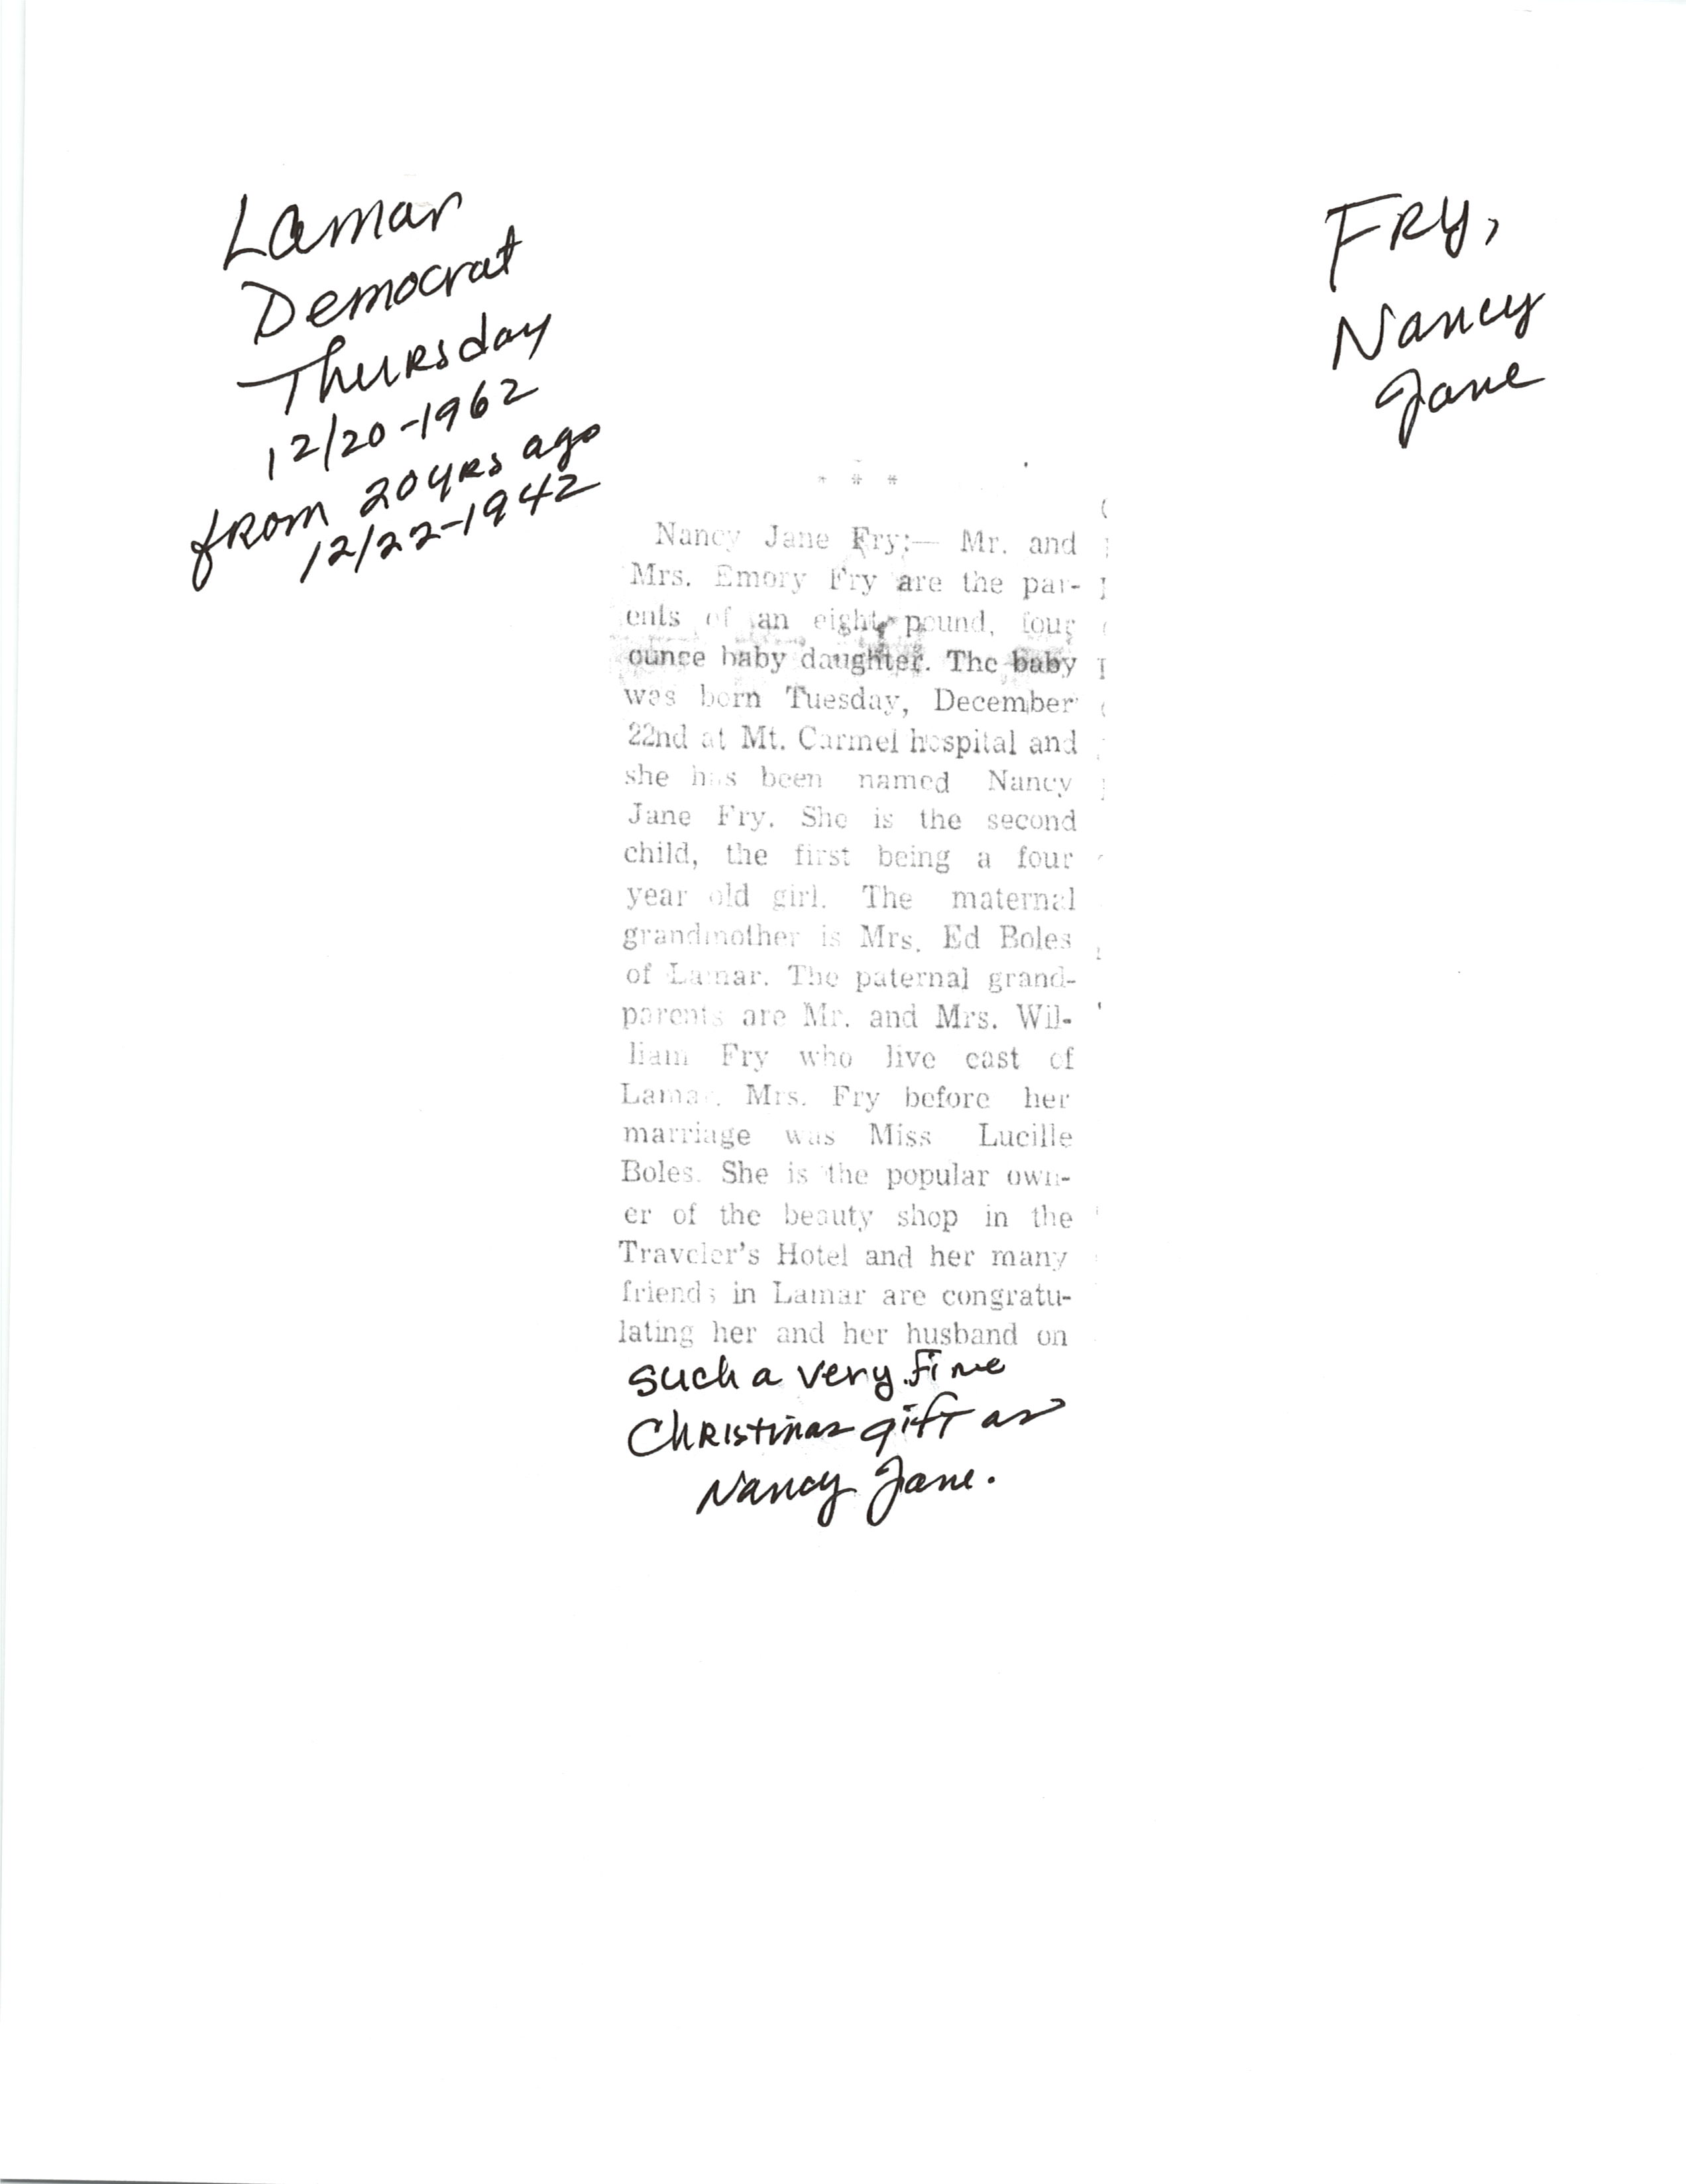 Lamar
Democrat
Thursday
12/20-1962
from 20 yrs ago
12/22-1942
FRY,
Nancy
Jane
* * *
Nancy Jane Fry;— Mr. and
Mrs. Emory Fry are the par-
ents of an eight pound, four
ounce baby daughter. The baby
was born Tuesday, December
22nd at Mt. Carmel hospital and
she has been named Nancy
Jane Fry. She is the second
child, the first being a four
year old girl. The maternal
grandmother is Mrs. Ed Boles
of Lamar. The paternal grand-
parents are Mr. and Mrs. Wil-
liam Fry who live east of
Lamar. Mrs. Fry before her
marriage was Miss Lucille
Boles. She is the popular own-
er of the beauty shop in the
Traveler's Hotel and her many
friends in Lamar are congratu-
lating her and her husband on
such a very fine
Christmas gift as
Nancy Jane.